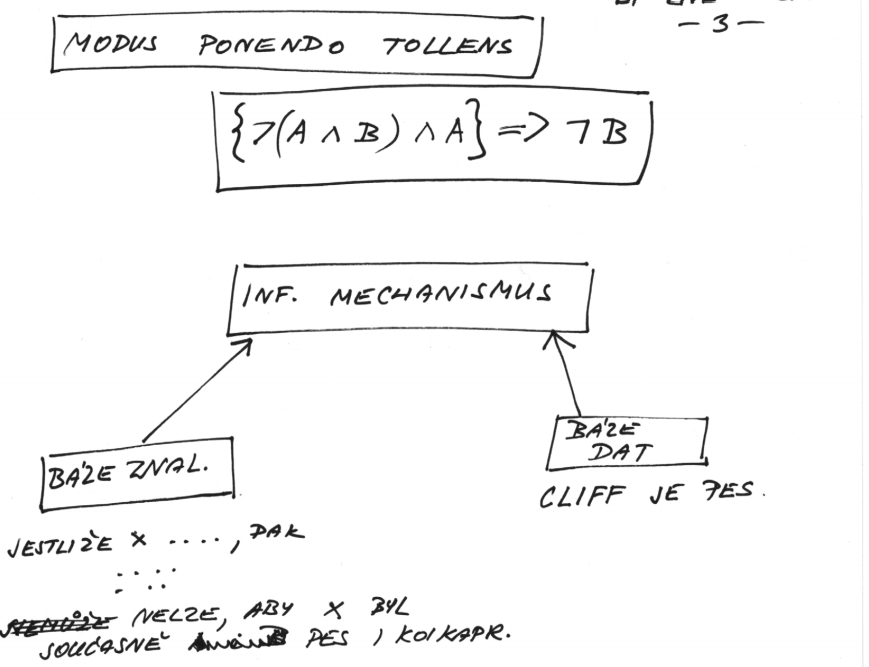 — 3 —
MODUS PONENDO TOLLENS
{¬(A ∧ B) ∧ A} => ¬B
INF. MECHANISMUS
BÁZE
DAT
BÁZE ZNAL.
CLIFF JE PES.
JESTLIŽE X ...., PAK
NELZE, ABY X BYL
SOUČASNĚ PES I KOIKAPR.